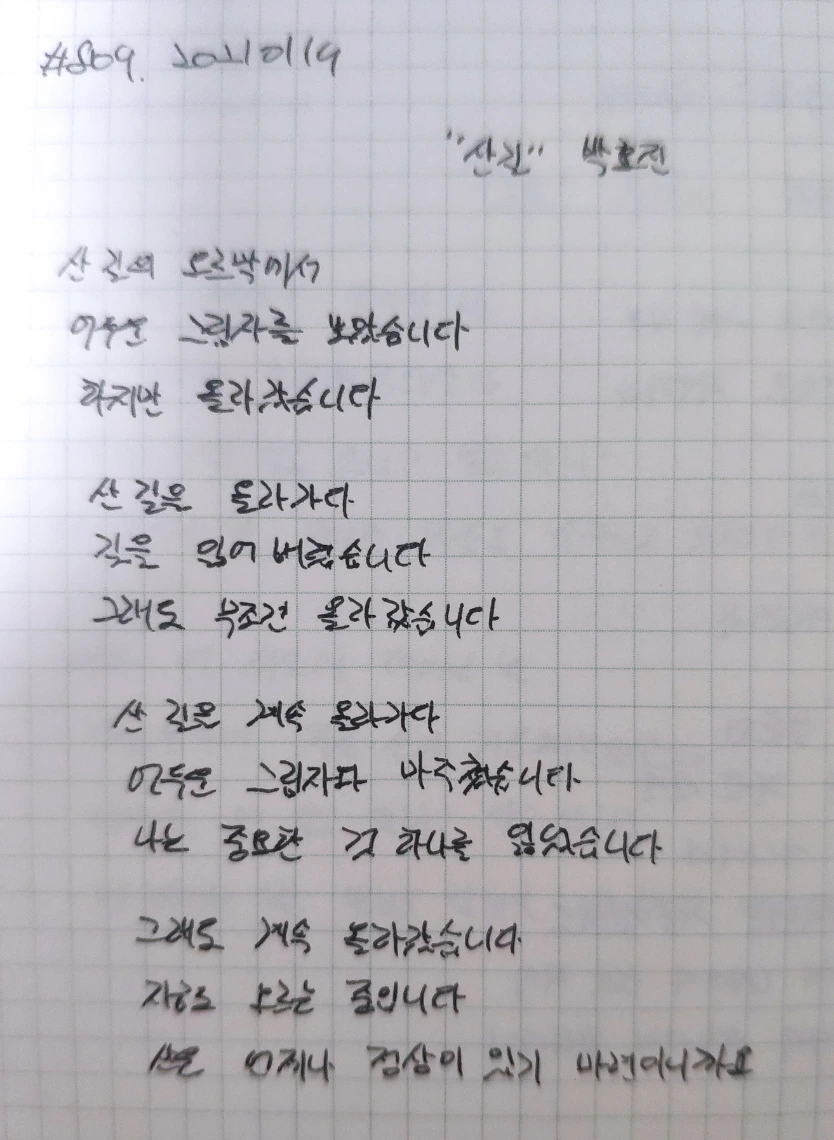 #809. 20210119
"산길" 박효진
산 길의 오르막에서
어두운 그림자를 보았습니다
하지만 올라갔습니다
산 길을 올라가다
길을 잃어 버렸습니다
그래도 무조건 올라갔습니다
산 길을 계속 올라가다
어두운 그림자와 마주쳤습니다
나는 중요한 것 하나를 잃었습니다
그래도 계속 올라갔습니다
지금도 오르는 중입니다
산은 언제나 정상이 있기 마련이니까요